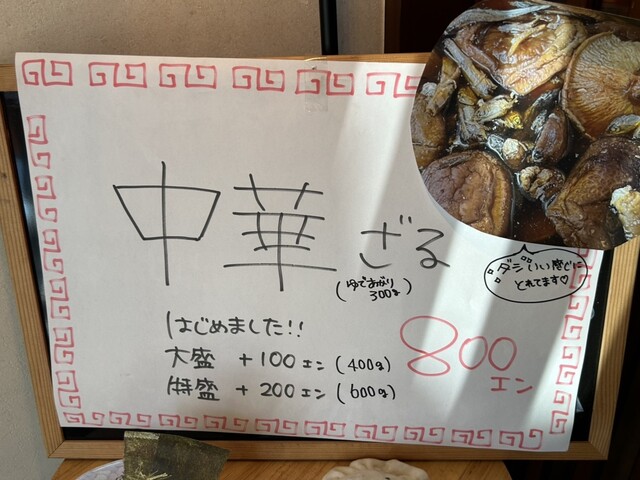 中華ざる
(ゆであがり
300g)
ダシいい感じに
とれてます♡
はじめました!!
大盛 +100エン (400g)
特盛 +200エン (600g)
800
エン